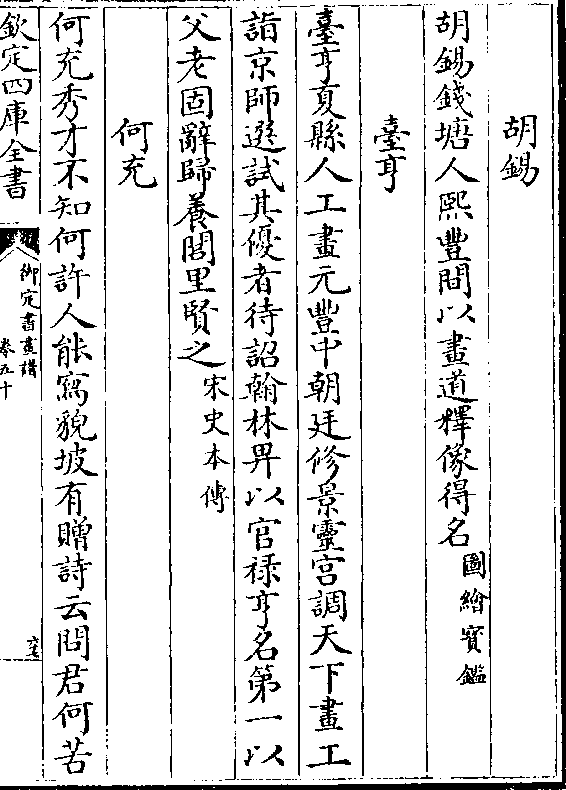 胡錫
胡錫錢塘人熙豐間以畫道釋像得名圖繪寳鑑
臺亨
臺亨夏縣人工畫元豐中朝廷修景靈宮調天下畫工
詣京師選試其優者待詔翰林畀以官禄亨名第一以
父老固辭歸養閭里賢之宋史本傳
何充
何充秀才不知何許人能寫貌坡有贈詩云問君何苦
欽定四庫全書
御定書畫譜
卷五十